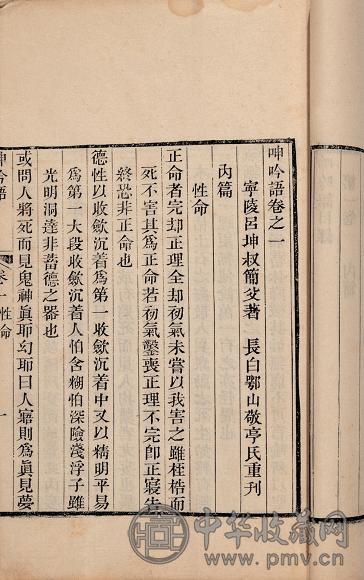 呻吟語卷之一
寧陵呂坤叔簡父著 長白鄂山敬亭氏重刊
內篇
性命
正命者完却正理全却初氣未嘗以我害之雖桎梏而
死不害其為正命若初氣鑿喪正理不完卽正寢告
終恐非正命也
德性以收斂沉着為第一收斂沉着中又以精明平易
為第一大段收斂沉着人怕含糊怕深險淺浮子雖
光明洞達非蓄德之器也
或問人將死而見鬼神眞耶幻耶曰人寤則為眞見夢
呻吟語 卷一 性命 一
中华收藏网
www.pmv.cn